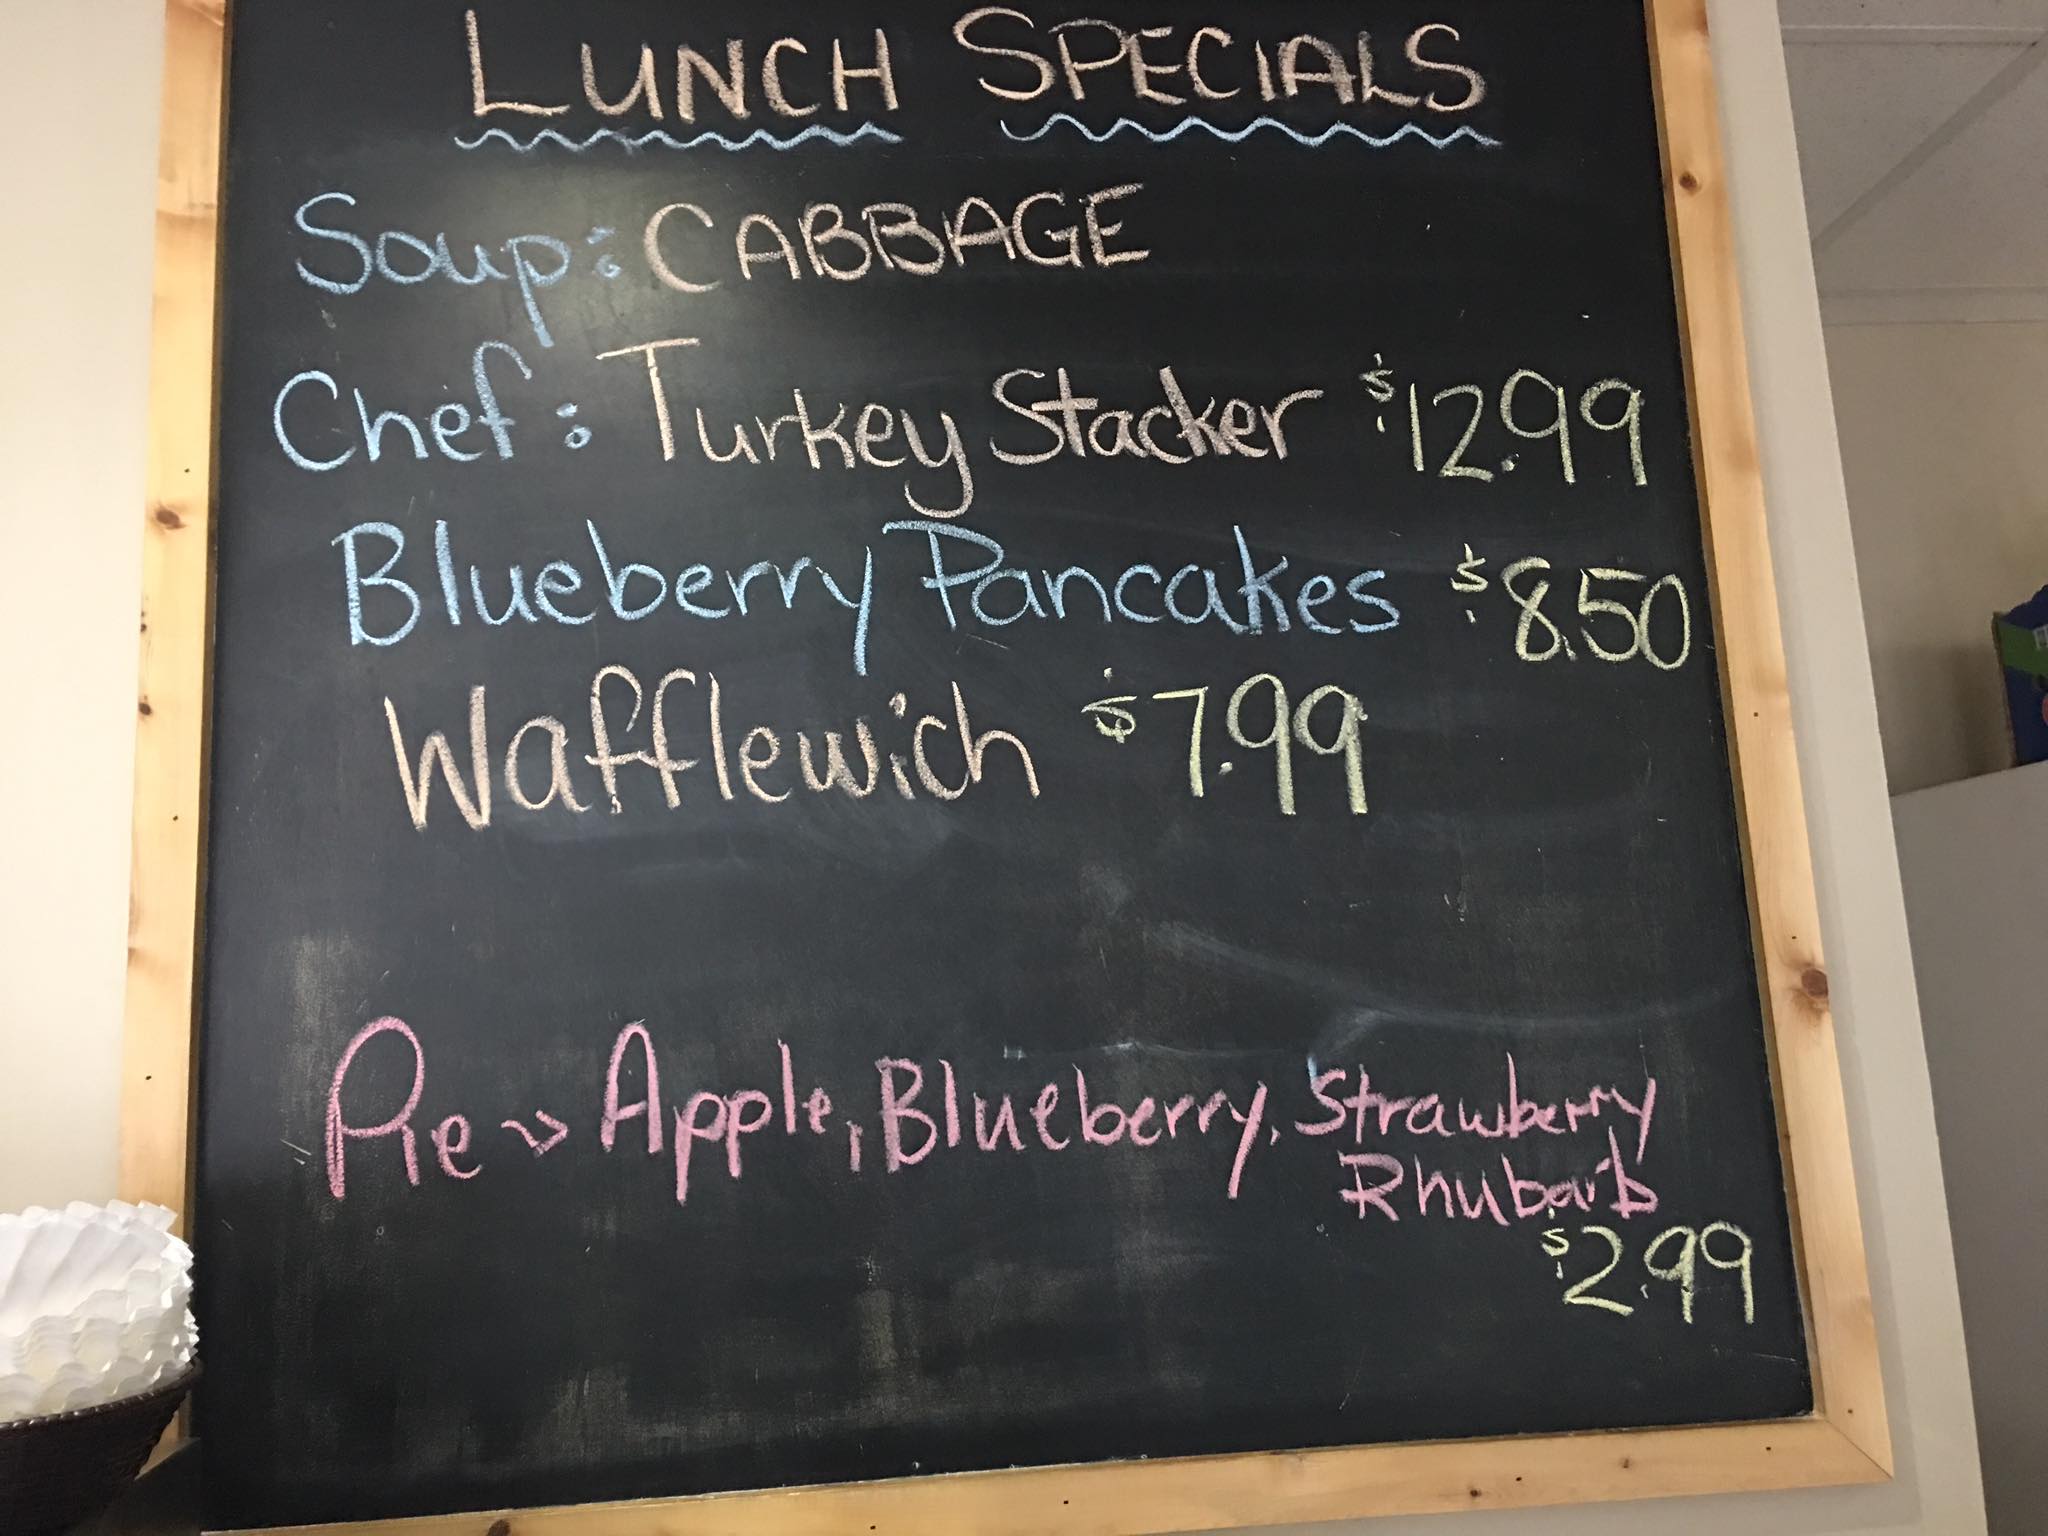 LUNCH SPECIALS
Soup: CABBAGE
Chef: Turkey Stacker $12.99
Blueberry Pancakes $8.50
Wafflewich $7.99
Pie → Apple, Blueberry, Strawberry
Rhubarb
$2.99